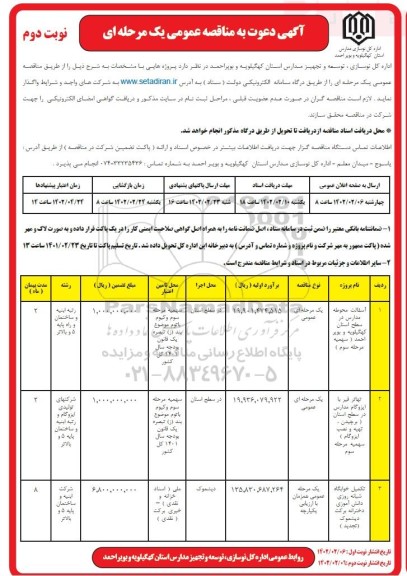 اداره کل نوسازی مدارس
استان کهگیلویه و بویراحمد
آگهی دعوت به مناقصه عمومی یک مرحله ای
نوبت دوم
اداره کل نوسازی ، توسعه و تجهیز مدارس استان کهگیلویه و بویراحمد در نظر دارد پروژه هایی با مشخصات به شرح ذیل را از طریق مناقصه
عمومی یک مرحله ای را از طریق درگاه سامانه الکترونیکی دولت ( ستاد ) به آدرس www.setadiran.ir به شرکت های واجد و شرایط واگذار
نماید . لازم است مناقصه گران در صورت عدم عضویت قبلی ، مراحل ثبت نام در سایت مذکور و دریافت گواهی امضای الکترونیکی را جهت
شرکت در مناقصه محقق سازند.
* محل دریافت اسناد مناقصه از دریافت تا تحویل از طریق درگاه مذکور انجام خواهد شد.
اطلاعات تماس دستگاه مناقصه گزار جهت دریافت اطلاعات بیشتر در خصوص اسناد و ارائه ( پاکت تضمین شرکت در مناقصه ) از طریق آدرس :
یاسوج - میدان معلم - اداره کل نوسازی مدارس استان کهگیلویه و بویر احمد به شماره تماس : انجام می پذیرد .
ارسال به صفحه اعلان عمومی
مهلت دریافت اسناد
مهلت ارسال پاکتهای پیشنهادی
زمان بازگشائی
زمان اعتبار پیشنهادها
چهارشنبه ۱۴۰۲/۰۲/۰۶ ساعت ۸
یکشنبه ۱۴۰۲/۰۲/۱۰ ساعت ۱۸
شنبه ساعت ۱۶
یکشنبه ساعت ۸
ساعت ۱۴
۱- ضمانتنامه بانکی معتبر را ضمن ثبت در سامانه ستاد ، اصل ضمانت نامه را به همراه اصل گواهی صلاحیت ایمنی کار را در یک پاکت قرار داده و به صورت لاک و مهر
شده ( پاکت ممهور به مهر شرکت و نام پروژه و شماره تماس و آدرس ) به دبیرخانه این اداره کل تحویل داده شد . تاریخ تسلیم پاکت تا تاریخ ساعت ۱۳
۲- سایر اطلاعات و جزئیات مربوط در اسناد و شرایط مناقصه مندرج است.
ردیف
نام پروژه
نوع مناقصه
برآورد اولیه ( ریال )
محل اجرا
محل تامین اعتبار
مبلغ تضمین ( ریال )
رشته
مدت پیمان ( ماه )
۱
آسفالت محوطه مدارس در سطح استان کهگیلویه و بویر احمد ( سهمیه مرحله سوم )
یک مرحله ای عمومی
در سطح استان
سهمیه مرحله سوم وکیوم باکوم موضوع بند (ز) تبصره یک قانون بودجه سال ۱۴۰۱ کل کشور
۱,۰۰۰,۰۰۰,۰۰۰
رتبه ابنیه و ساختمان و راه پایه ۵ و بالاتر
۲
۲
تهاتر قیر با ایزوگام مدارس در سطح استان ( برچیدن ، تهیه و نصب ایزوگام ) سهمیه مرحله سوم
یک مرحله ای عمومی
۱۹,۹۳۶,۰۷۹,۹۲۲
در سطح استان
سهمیه مرحله سوم وکیوم باکوم موضوع بند (ز) تبصره یک قانون بودجه سال ۱۴۰۱ کل کشور
۱,۰۰۰,۰۰۰,۰۰۰
شرکتهای تولیدی ایزوگام و رتبه ابنیه ساختمان پایه ۵ و بالاتر
۲
۳
تکمیل خوابگاه شبانه روزی دانش آموزی دخترانه برکت دیشموک ( تجدید )
یک مرحله عمومی همزمان با ارزیابی یکپارچه
۱۳۵,۸۳۰,۶۸۷,۲۶۴
دیشموک
ملی ( اسناد خزانه و نقدی ) – خیری برکت ( نقدی )
۶,۸۰۰,۰۰۰,۰۰۰
شرکت ابنیه و ساختمان پایه ۵ و بالاتر
۸
مرکز فرآوری اطلاعات
پایگاه اطلاع رسانی مناقصه و مزایده
۰۲۱-۸۸۳۴۹۶۷۰-۵
تاریخ انتشار نوبت اول : ۱۴۰۲/۰۲/۰۶
تاریخ انتشار نوبت دوم :
روابط عمومی اداره کل نوسازی، توسعه و تجهیز مدارس استان کهگیلویه و بویراحمد